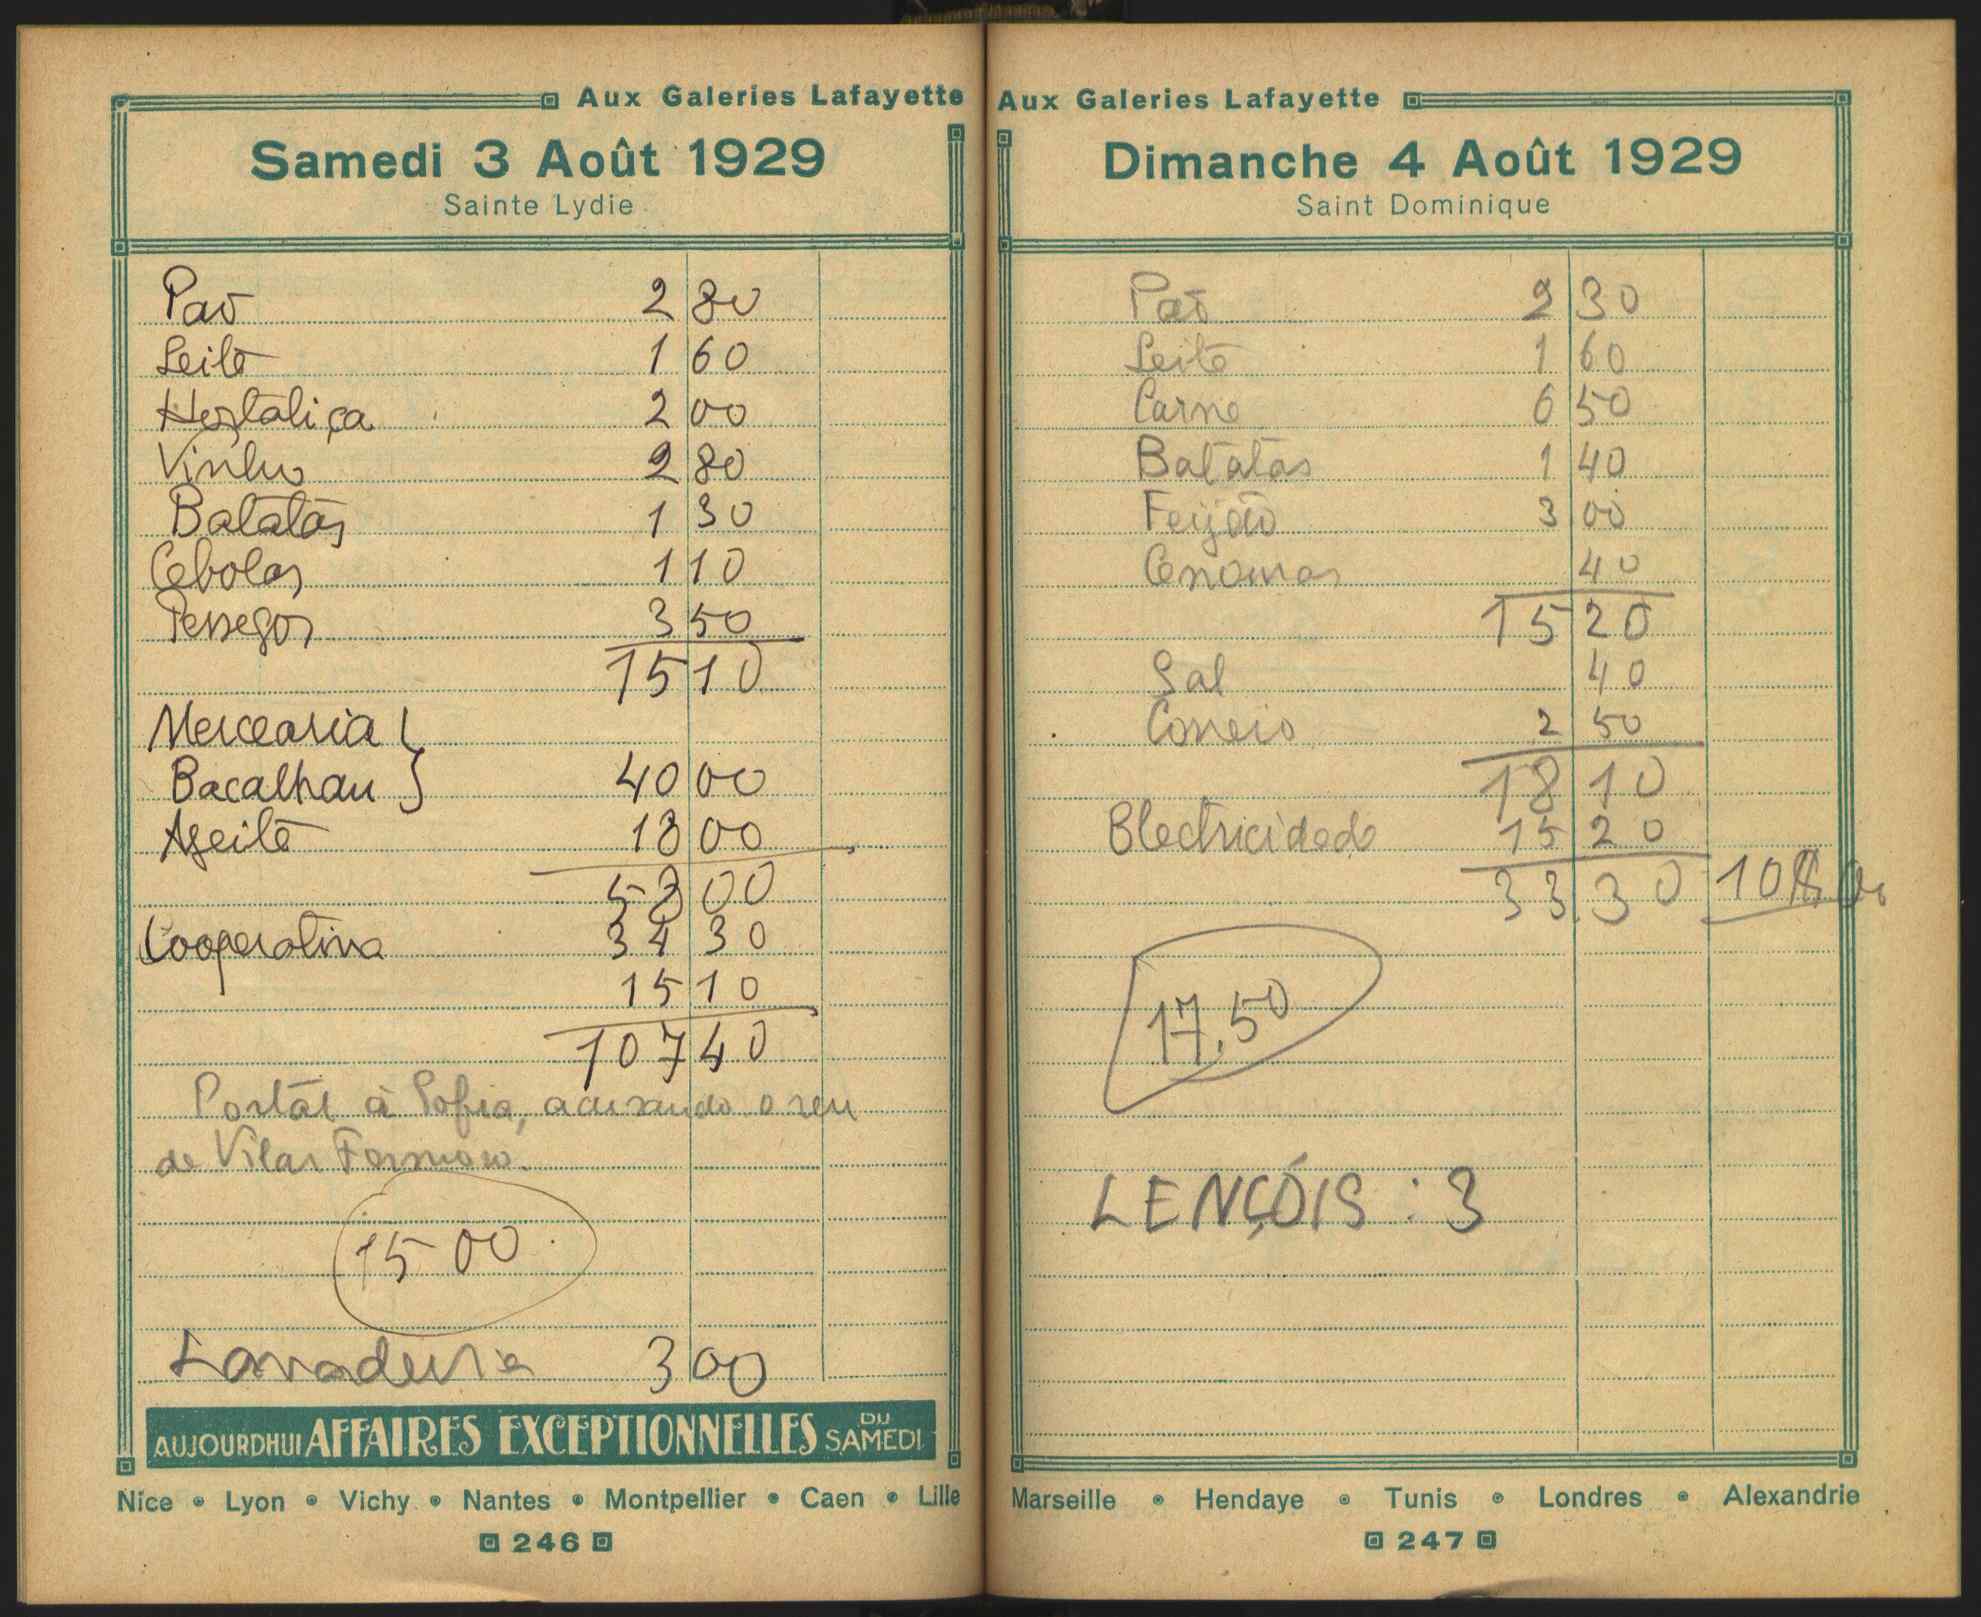 Aux Galeries Lafayette
Samedi 3 Août 1929
Sainte Lydie
Pão 2 80
Leite 1 60
Hortaliça 2 00
Vinho 2 80
Batatas 1 30
Cebolas 1 10
Pessegos 3 50
15 10
Mercearia
Bacalhau 40 00
Azeite 18 00
58 00
Cooperativa 34 30
15 10
107 40
Postal à Sofia, acusando o seu
de Vilar Formoso.
15 00
Lavadeira 3 00
AUJOURDHUI AFFAIRES EXCEPTIONNELLES DU SAMEDI
Nice • Lyon • Vichy • Nantes • Montpellier • Caen • Lille
246
Aux Galeries Lafayette
Dimanche 4 Août 1929
Saint Dominique
Pão 2 30
Leite 1 60
Carne 6 50
Batatas 1 40
Feijão 3 00
Cenouras 40
15 20
Sal 40
Correio 2 50
18 10
Electricidade 15 20
33 30
17,50
LENÇÓIS : 3
Marseille • Hendaye • Tunis • Londres • Alexandrie
247